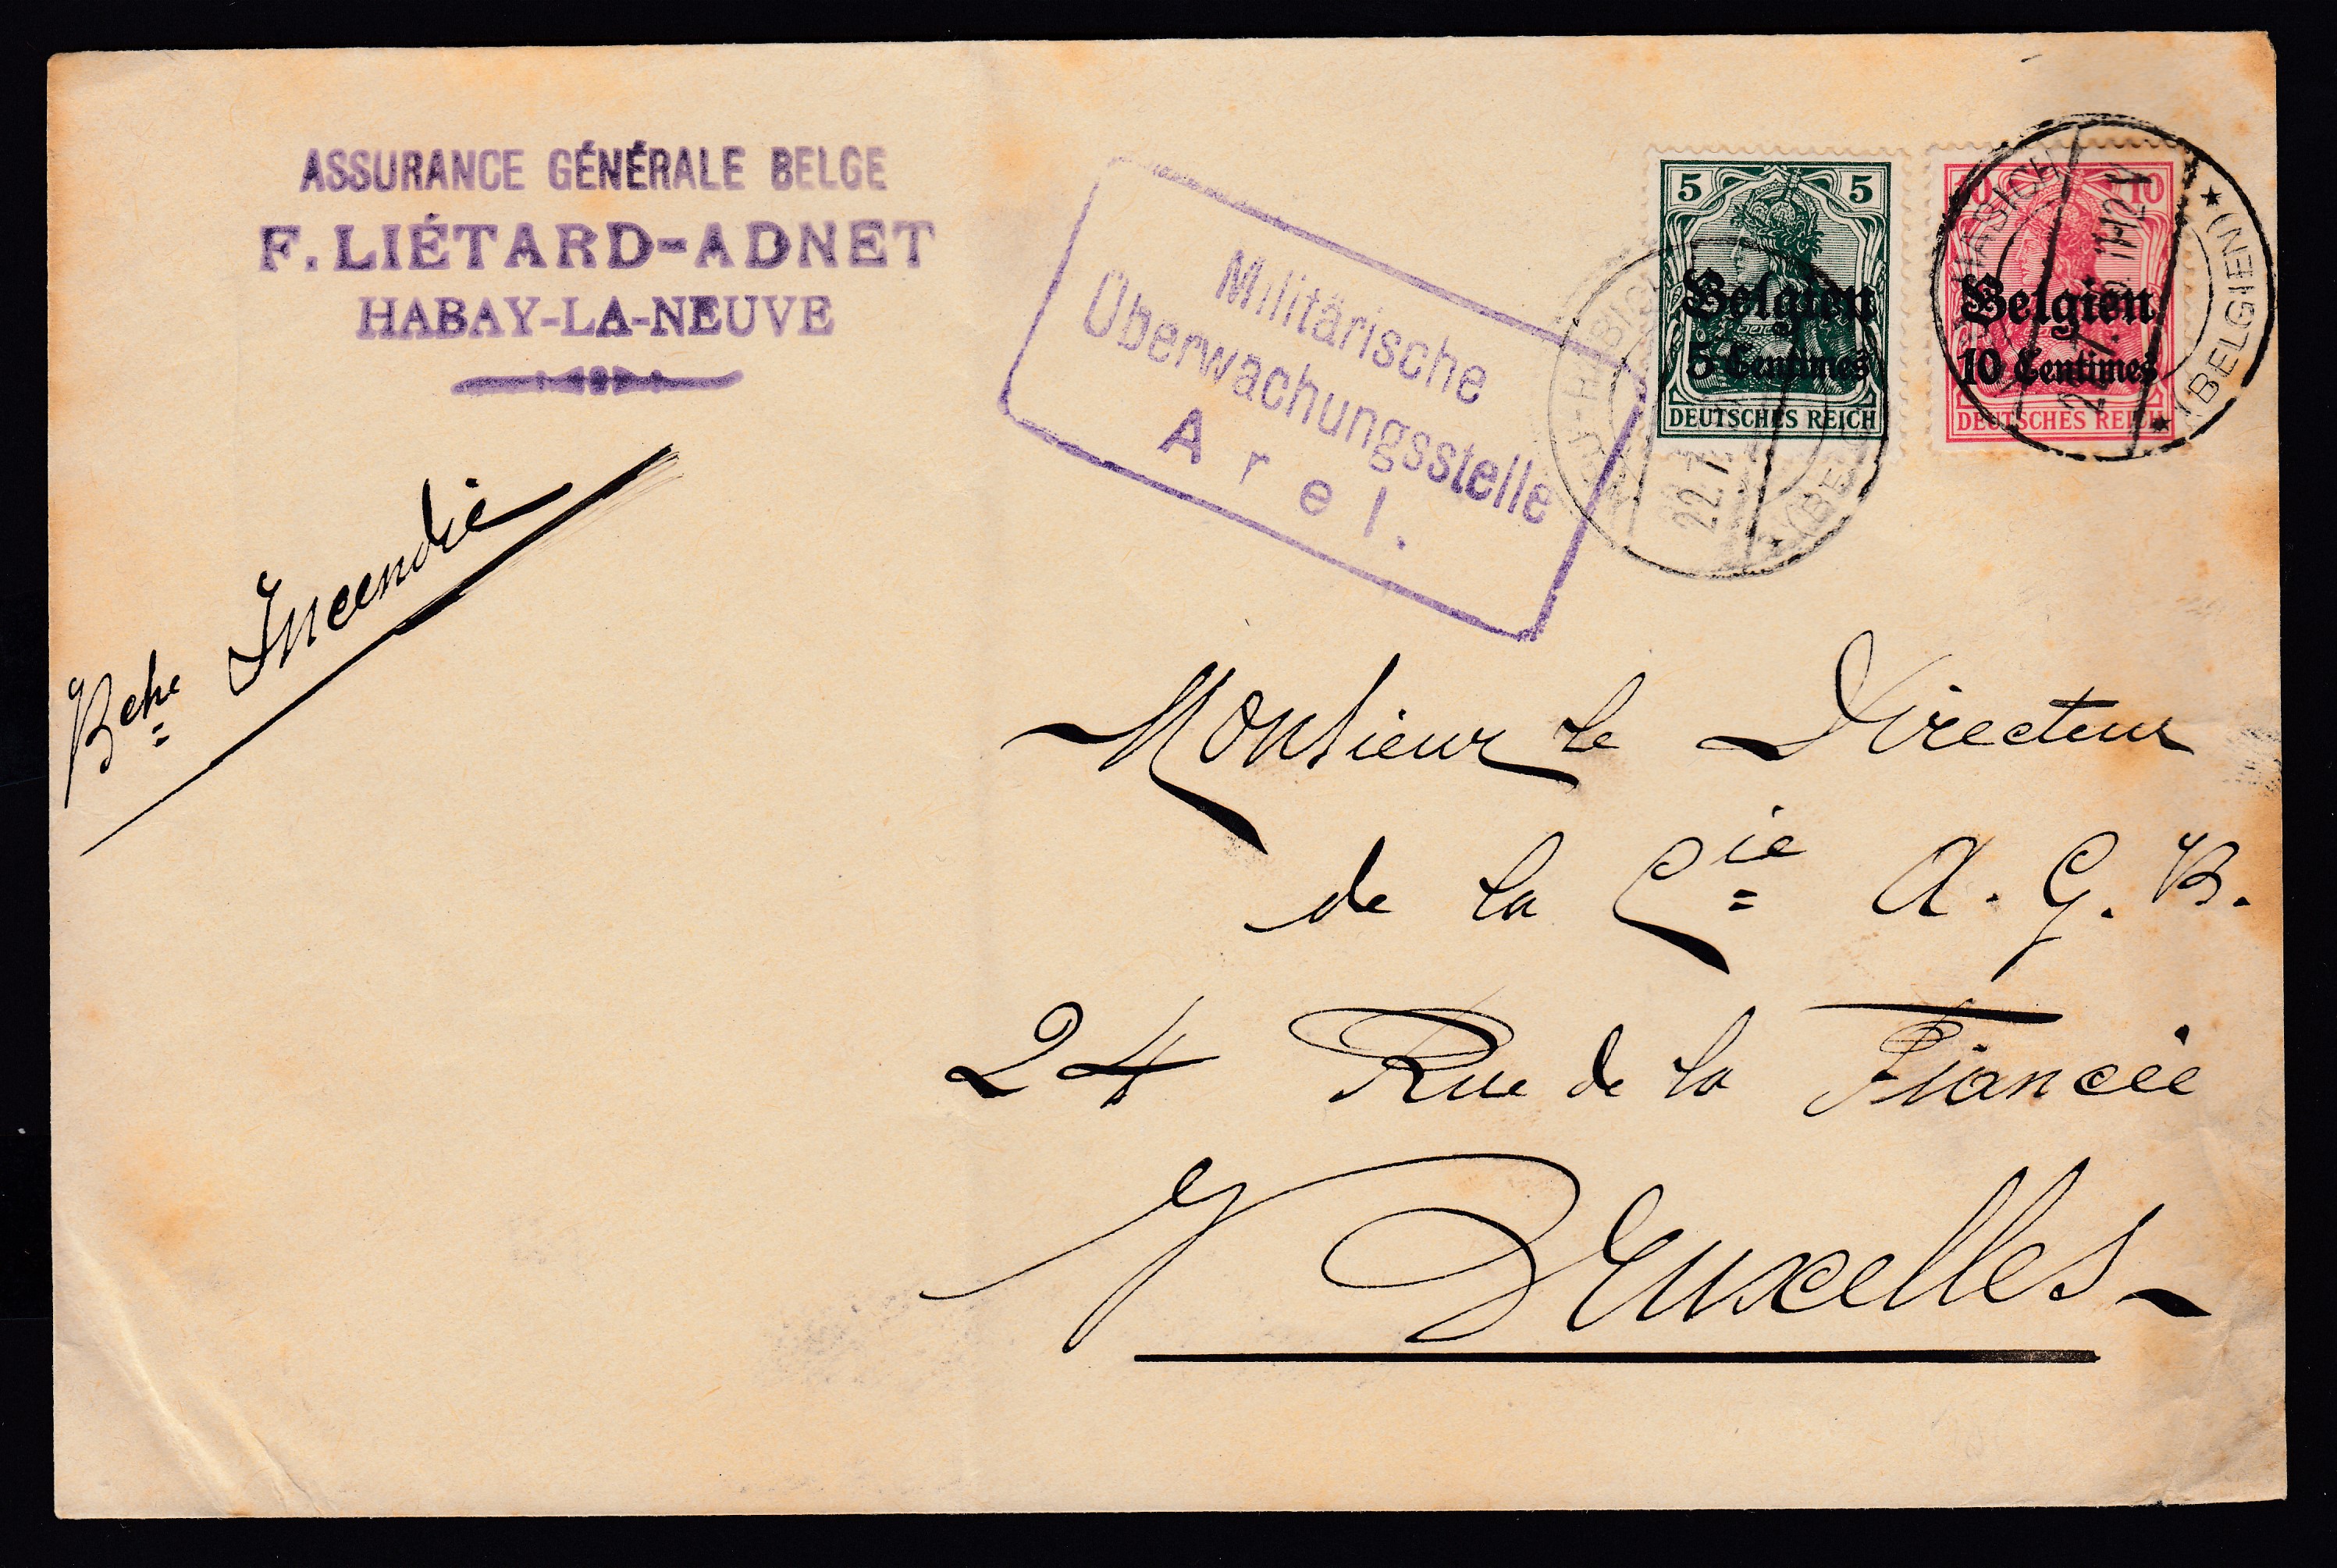 ASSURANCE GÉNÉRALE BELGE
F. LIÉTARD-ADNET
HABAY-LA-NEUVE
Militärische
Überwachungsstelle
Arel.
5 5
Belgien
5 Centimes
DEUTSCHES REICH
10 10
Belgien
10 Centimes
DEUTSCHES REICH
(BELGIEN)
22.7.
Bche Incendie
Monsieur le Directeur
de la Cie A. G. B.
24 Rue de la Fiancée
Bruxelles